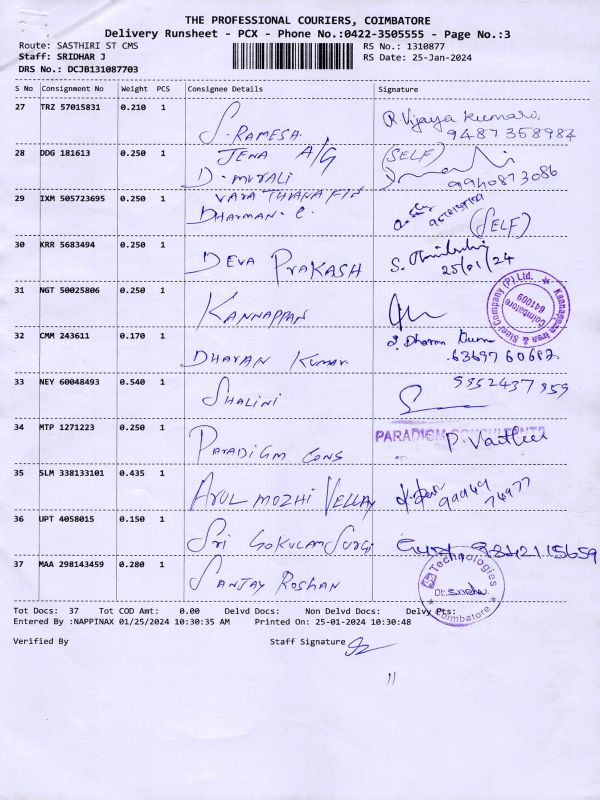 THE PROFESSIONAL COURIERS, COIMBATORE
Delivery Runsheet - PCX - Phone No.:0422-3505555 - Page No.:3
Route: SASTHIRI ST CMS RS No.: 1310877
Staff: SRIDHAR J RS Date: 25-Jan-2024
DRS No.: DCJB131087703
S No Consignment No Weight PCS Consignee Details Signature
27 TRZ 57015831 0.210 1 S. RAMESA. R Vijaya Kumari
9487358984
28 DDG 181613 0.250 1 JENA A/G (SELF)
D. MURALI 9940873086
29 IXM 505723695 0.250 1 FIN
DHARMAN. C. (SELF)
30 KRR 5683494 0.250 1 DEVA PRAKASH S.
25/01/24
31 NGT 50025806 0.250 1 KANNAPPAN Kannappan Iron & Steel Company (P) Ltd.
Coimbatore
641009
32 CMM 243611 0.170 1 DHARAN KUMAR Dharan Kumar
33 NEY 60048493 0.540 1 SHALINI 9952437959
34 MTP 1271223 0.250 1 PARADIGM CONS PARADIGM CONSULTANTS
P.
35 SLM 338133101 0.435 1 ARUL MOZHI VELLAY 99949
74977
36 UPT 4058015 0.150 1 SRI GOKULAM SURGI 9842115659
37 MAA 298143459 0.280 1 SANJAY ROSHAN Technologies
Coimbatore
Tot Docs: 37 Tot COD Amt: 0.00 Delvd Docs: Non Delvd Docs: Delvy Pts:
Entered By :NAPPINAX 01/25/2024 10:30:35 AM Printed On: 25-01-2024 10:30:48
Verified By Staff Signature